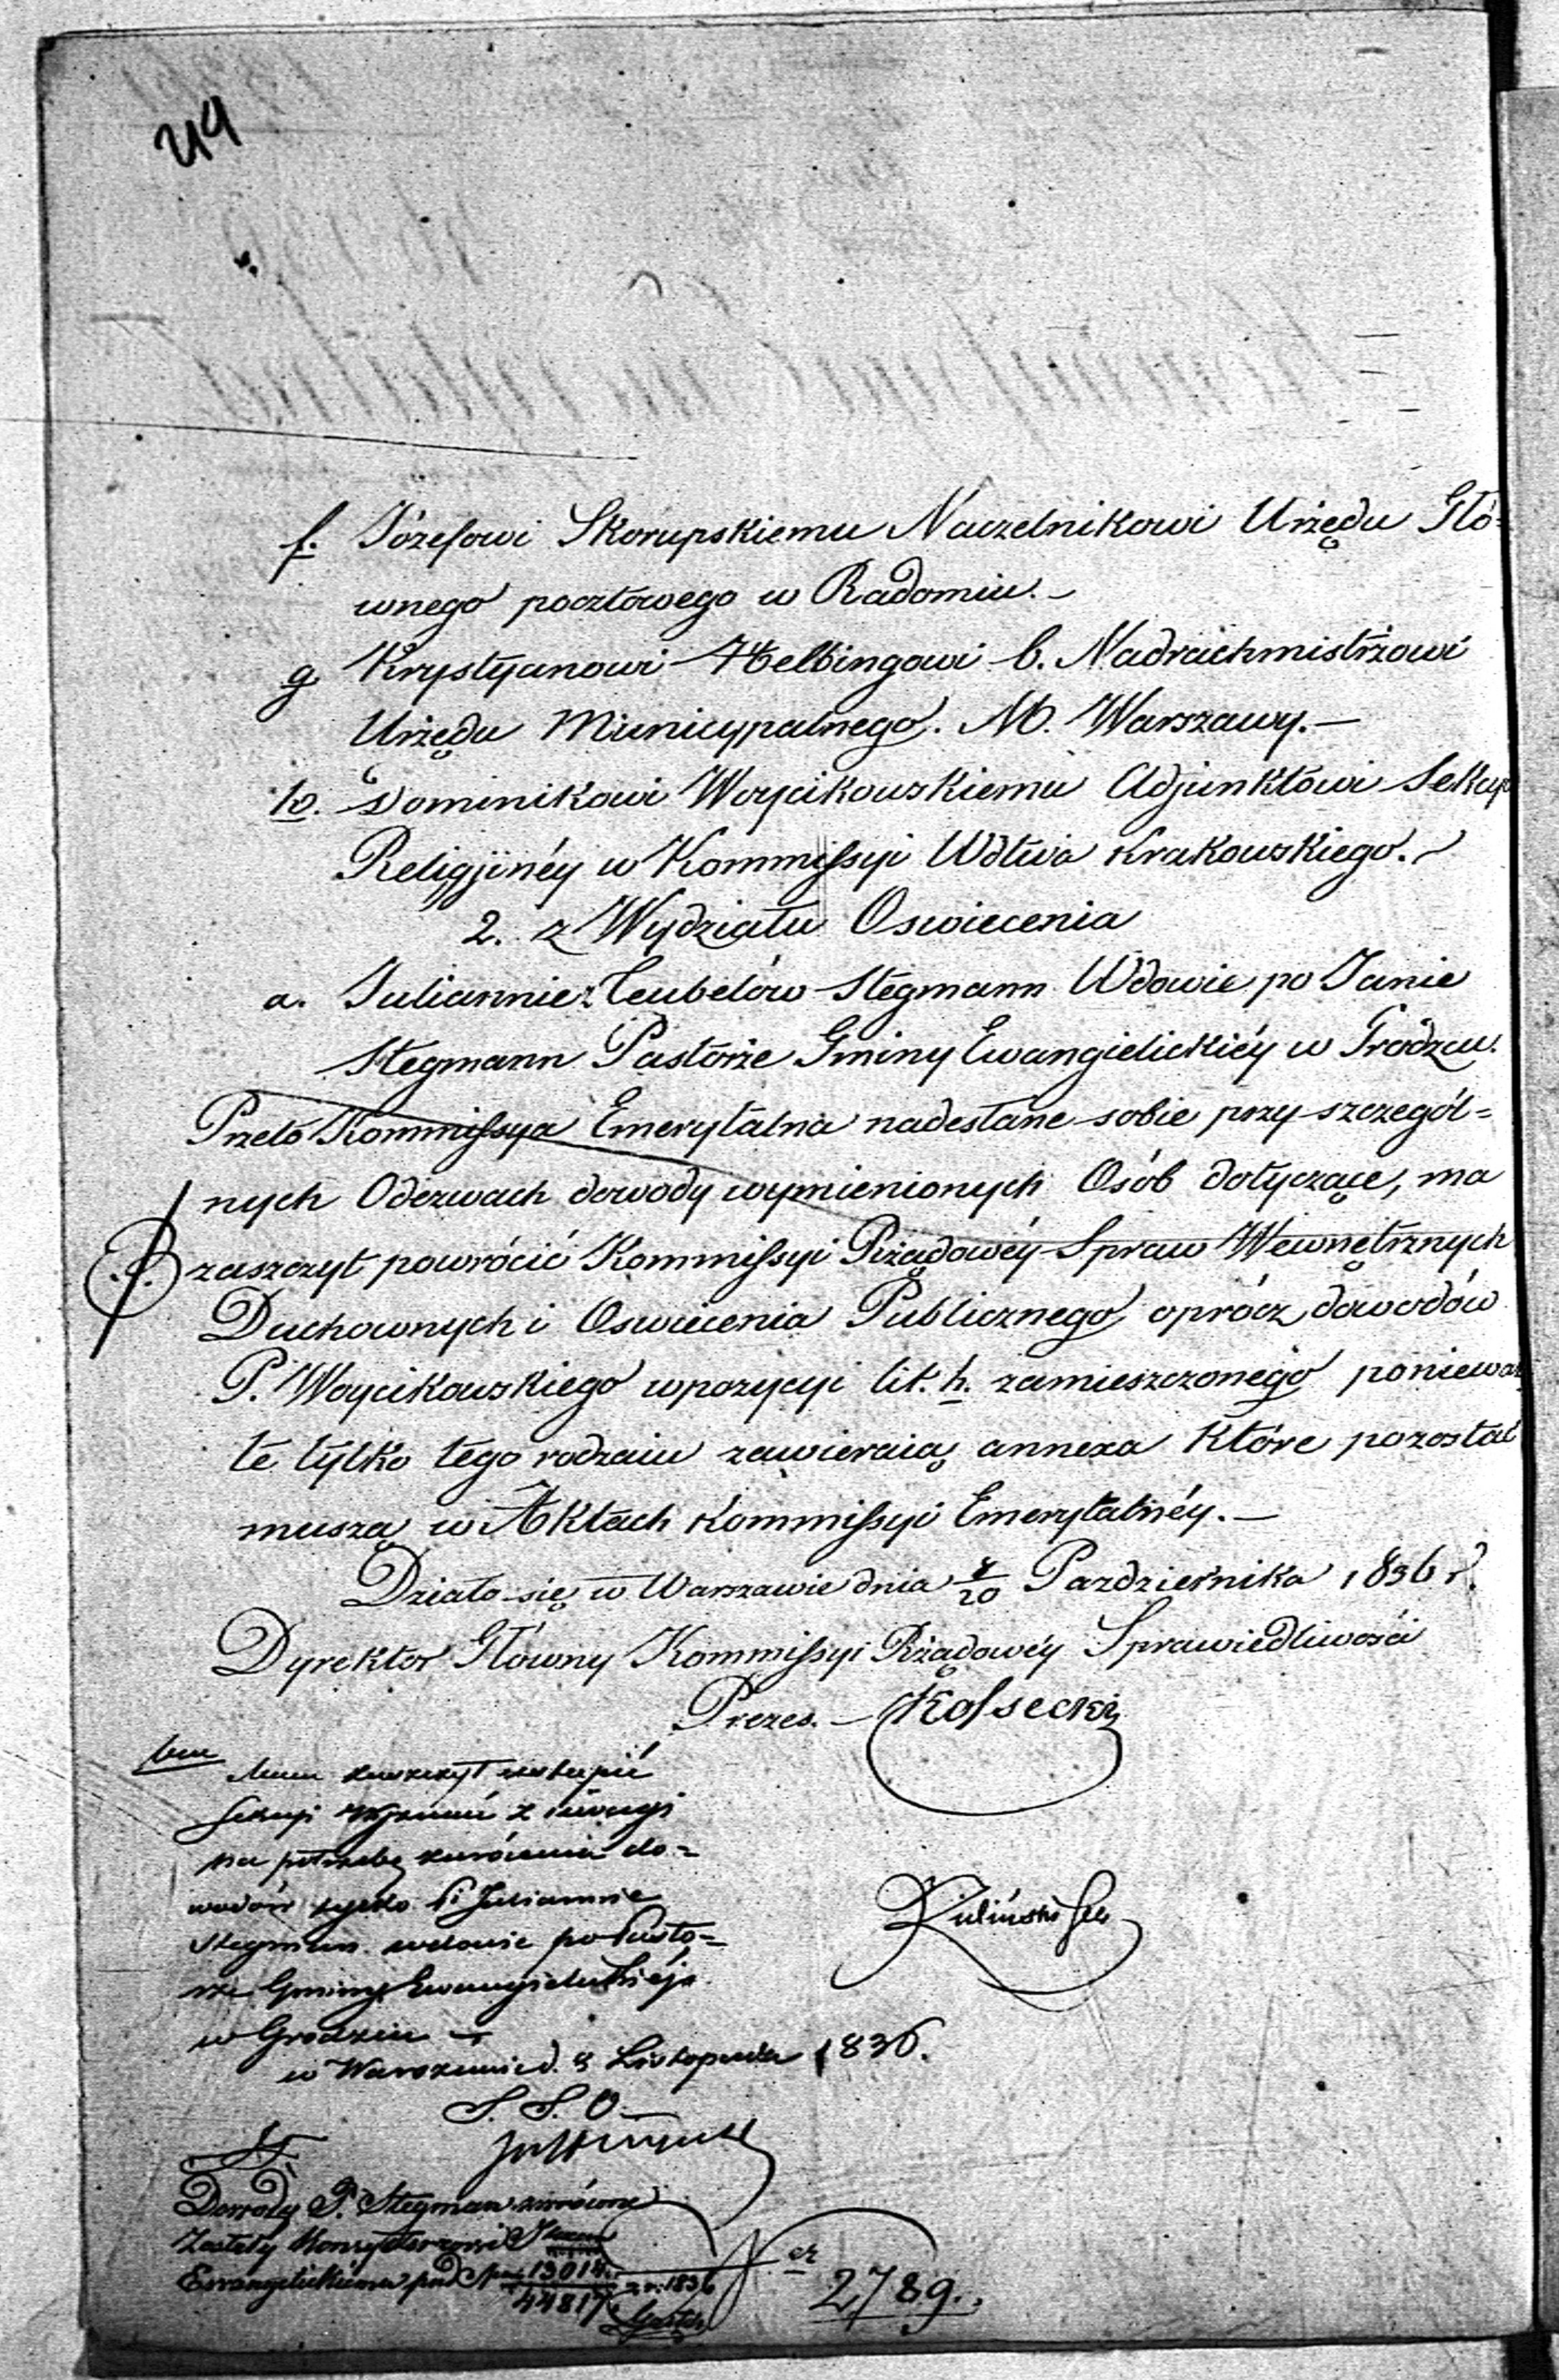 44
f. Józefowi Skorupskiemu Naczelnikowi Urzędu Głó=
wnego pocztowego w Radomiu.–
g Krystyanowi Helbingowi b. Nadrachmistrzowi
Urzędu Municypalnego. M. Warszawy.–
h. Dominikowi Woycikowskiemu Adjunktowi Sekcyi
Religijnéy w Kommissyi Wdtwa Krakowskiego.–
2. z Wydziału Oswiecenia
a. Juliannie z Teubelów Stegmann Wdowie po Janie
Stegmann Pastorze Gminy Ewangielickiéy w Gródzcu.
Przeto Kommissya Emerytalna nadesłane sobie przy szczegól=
nych Odezwach dowody wymienionych Osób dotyczące, ma
zaszczyt powrócić Kommissyi Rządowéy Spraw Wewnętrznych
Duchownych i Oswiecenia Publicznego oprócz dowodów
P. Woycikowskiego w pozycyi lit. h. zamieszczonego poniewaz
te tylko tego rodzaiu zawieraią annexa które pozostać
muszą w Aktach Kommissyi Emerytalnéy.–
Działo się w Warszawie dnia 8/20 Pazdziernika 1836 r.
Dyrektor Główny Kommissyi Rządowéy Sprawiedliwości
Prezes.– Kossecki
Mam zaszczyt
Sekcyi z uwagi
na potrzebę zwrócenia do=
wodów tylko Juliannie
Stegman wdowie po Pasto=
rze Gminy Ewangielickiéj
w Grodzcu –
w Warszawie d. 8 Listopada 1836.
S. S. O.
Dowody P. Stegman zwrócone
Zostały Konsystorzowi
Ewangelickiemu pod 13014
44817 z r. 1836
N er 2789.